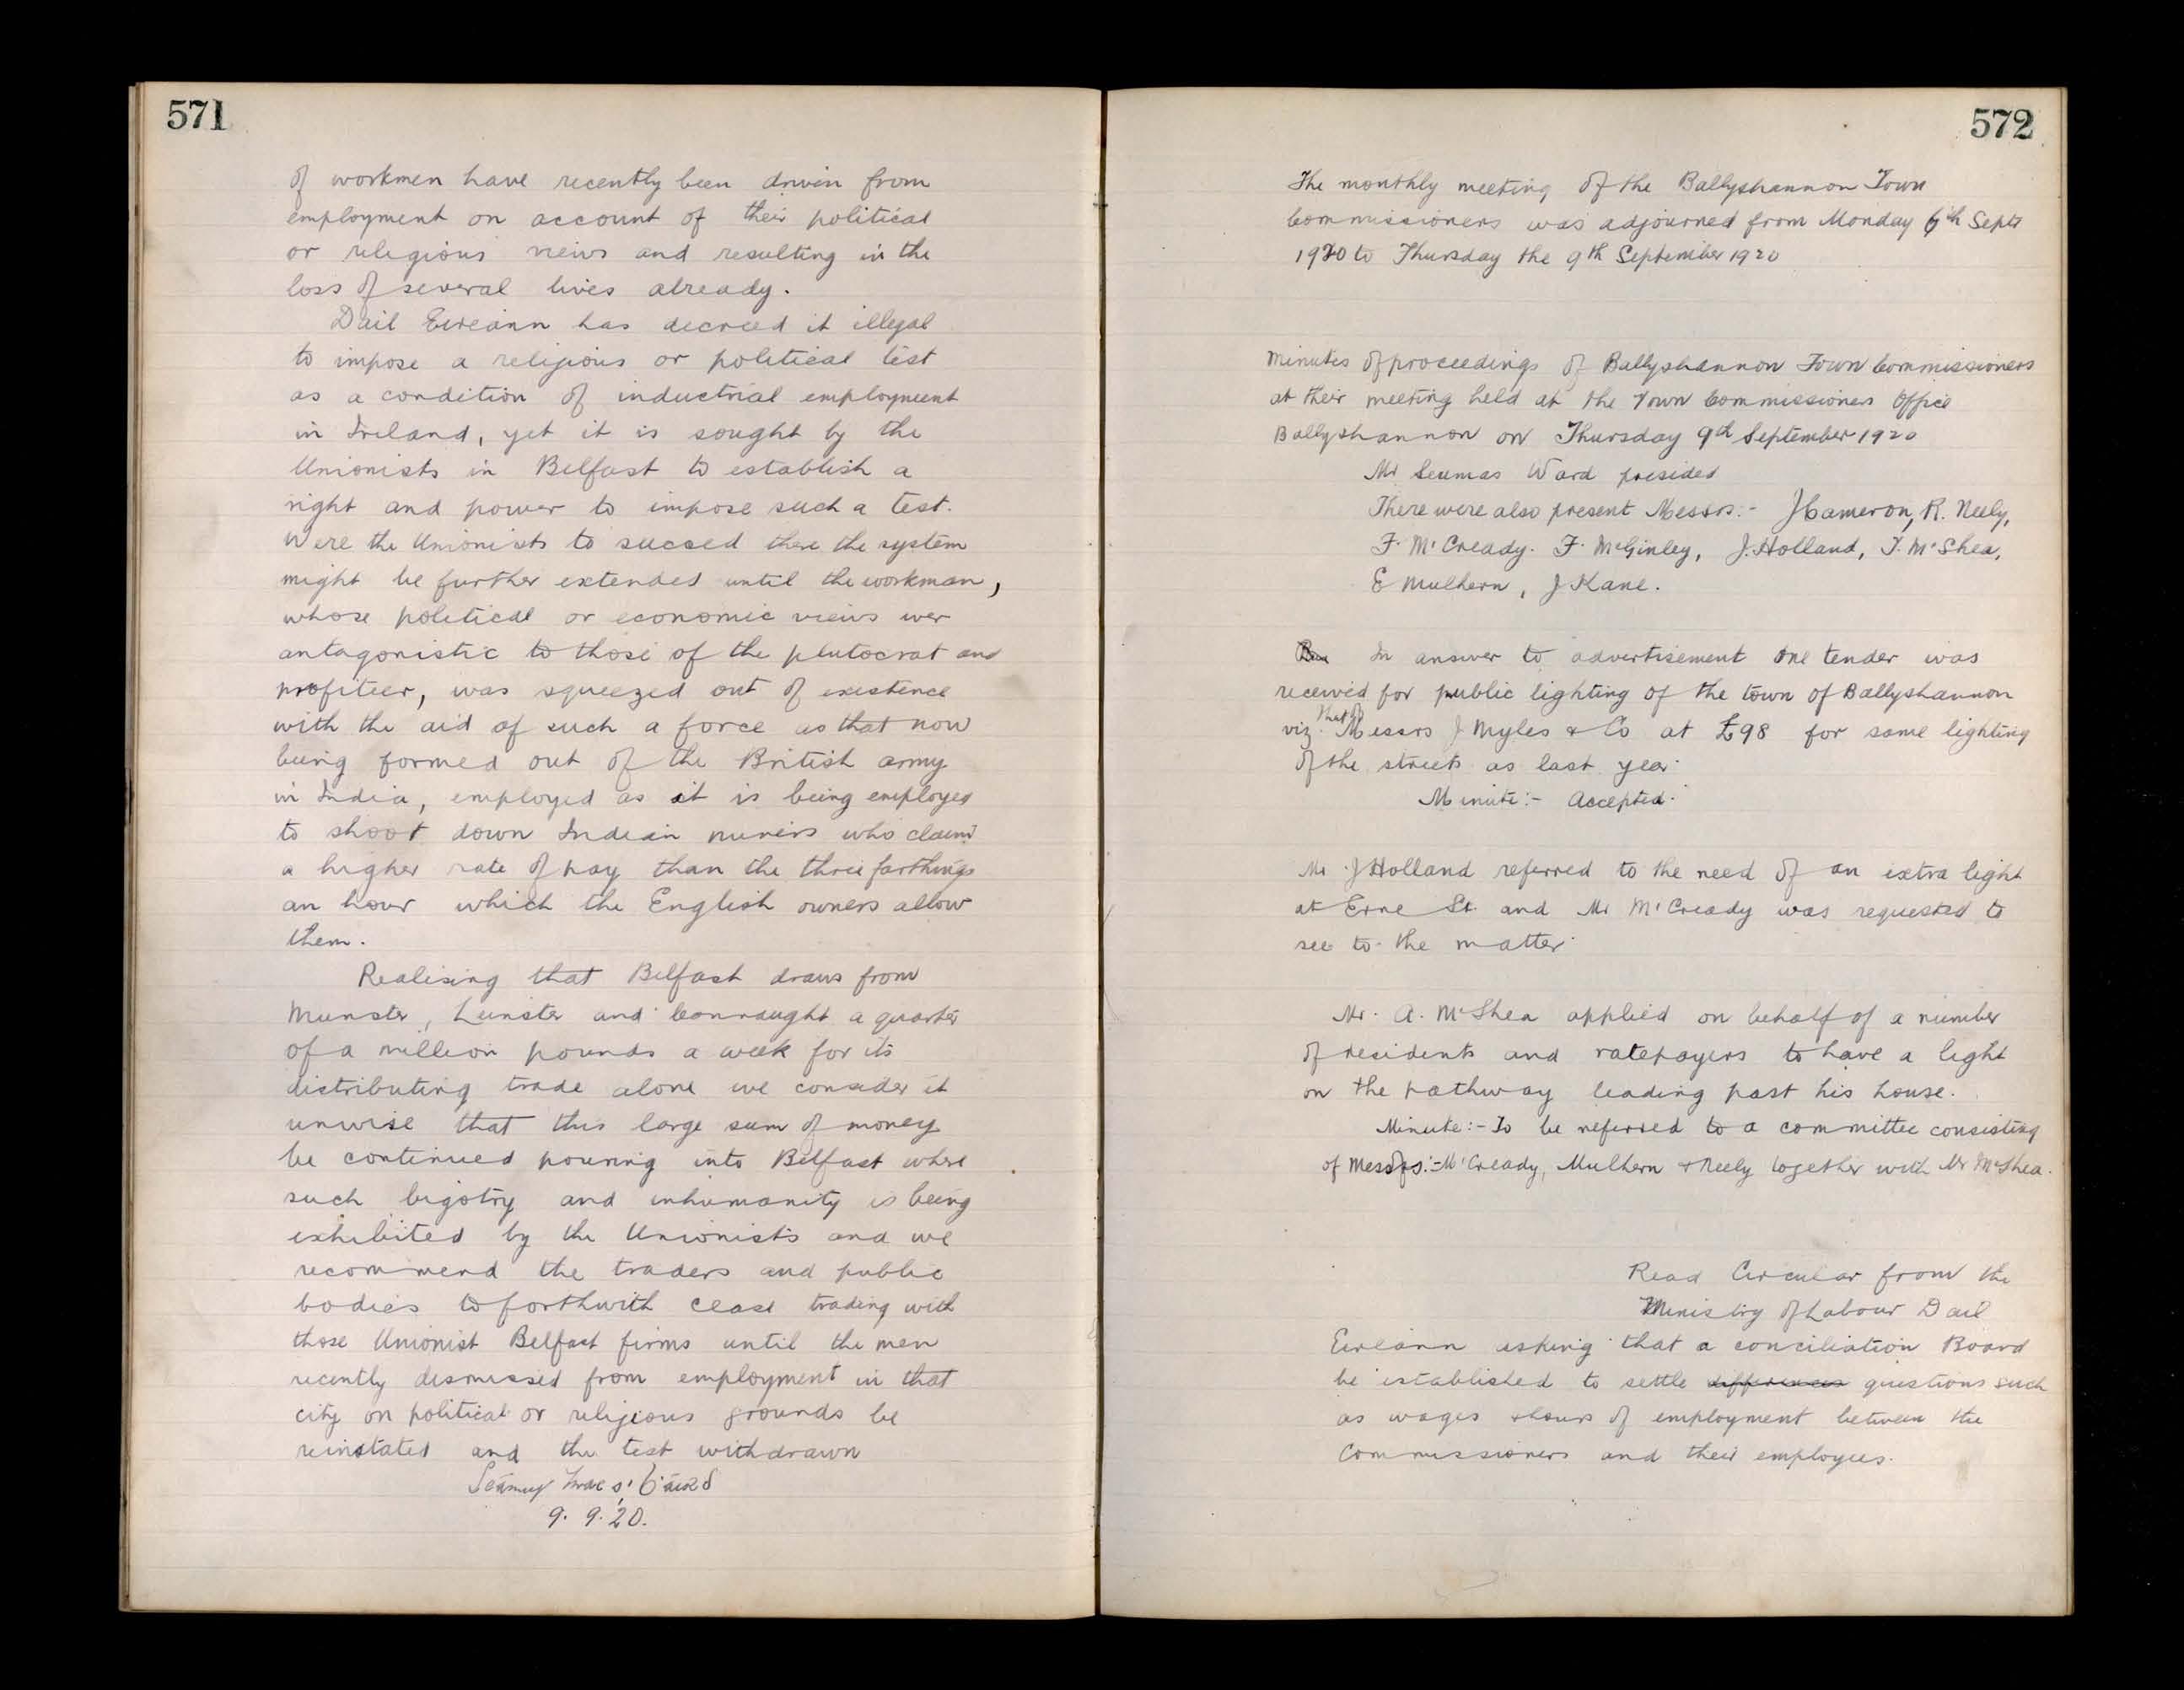 571
of workmen have recently been driven from
employment on account of their political
or religious views and resulting in the
loss of several lives already.
Dail Eireann has decreed it illegal
to impose a religious or political test
as a condition of industrial employment
in Ireland, yet it is sought by the
Unionists in Belfast to establish a
right and power to impose such a test.
Were the Unionists to succeed there the system
might be further extended until the workman,
whose political or economic views wer
antagonistic to those of the plutocrat and
profiteer, was squeezed out of existence
with the aid of such a force as that now
being formed out of the British army
in India, employed as it is being employed
to shoot down Indian miners who claim
a higher rate of pay than the three farthings
an hour which the English owners allow
them.
Realising that Belfast draws from
Munster, Leinster and Connaught a quarter
of a million pounds a week for its
distributing trade alone we consider it
unwise that this large sum of money
be continued pouring into Belfast where
such bigotry and inhumanity is being
exhibited by the Unionists and we
recommend the traders and public
bodies to forthwith cease trading with
those Unionist Belfast firms until the men
recently dismissed from employment in that
city on political or religious grounds be
reinstated and the test withdrawn
9. 9. 20.
572
The monthly meeting of the Ballyshannon Town
Commissioners was adjourned from Monday 6th Septr
1920 to Thursday the 9th September 1920
Minutes of proceedings of Ballyshannon Town Commissioners
at their meeting held at the Town Commissioners Office
Ballyshannon on Thursday 9th September 1920
Mr Seumas Ward presided
There were also present Messrs:- J Cameron, R. Neely,
F. McCready. F. McGinley, J. Holland, T. McShea,
E Mulhern, J Kane.
In answer to advertisement one tender was
received for public lighting of the town of Ballyshannon
viz. that of Messrs J Myles & Co at £98 for same lighting
of the streets as last year.
Minute:- Accepted.
Mr J Holland referred to the need of an extra light
at Erne St. and Mr McCready was requested to
see to the matter.
Mr. A. McShea applied on behalf of a number
of residents and ratepayers to have a light
on the pathway leading past his house.
Minute:- To be referred to a committee consisting
of Messrs:- McCready, Mulhern & Neely together with Mr McShea.
Read Circular from the
Ministry of Labour Dail
Eireann asking that a conciliation Board
be established to settle differences questions such
as wages & hours of employment between the
Commissioners and their employees.